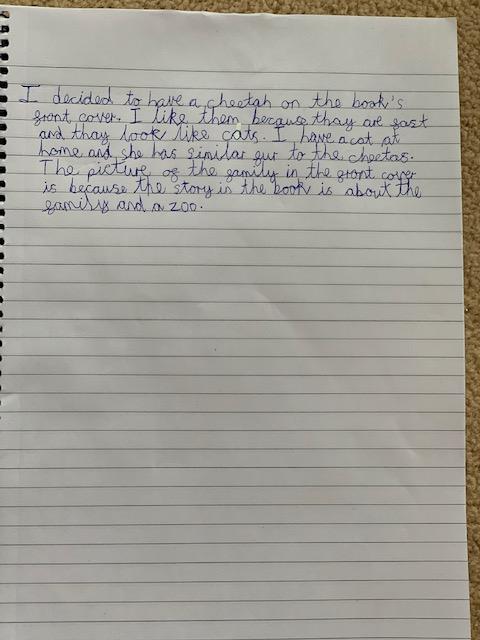 I decided to have a cheetah on the book's
front cover. I like them because thay are fast
and thay look like cats. I have a cat at
home and she has similar fur to the cheetas.
The picture of the family in the front cover
is because the story in the book is about the
family and a zoo.